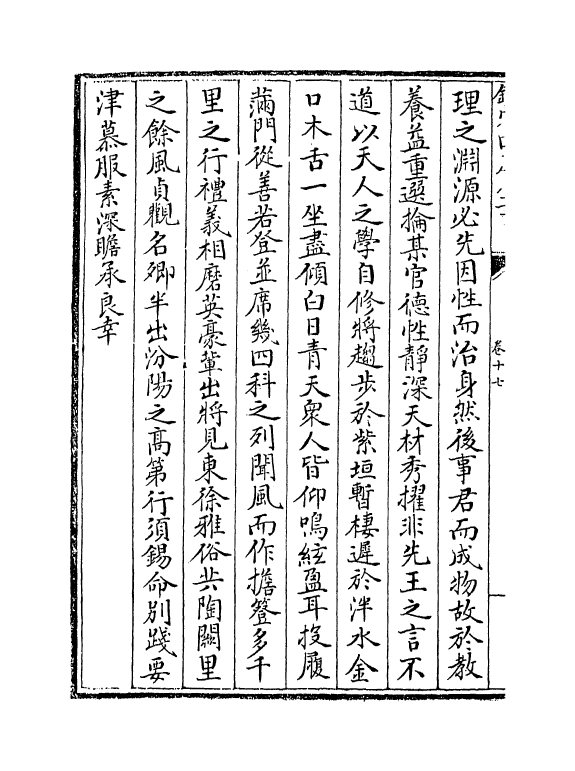 理之淵源必先因性而治身然後事君而成物故於教
養益重選掄某官德性靜深天材秀擢非先王之言不
道以天人之學自修將趨步於紫垣暫棲遲於泮水金
口木舌一坐盡傾白日青天衆人皆仰鳴絃盈耳投履
滿門從善若登並席幾四科之列聞風而作擔簦多千
里之行禮義相磨英豪輩出將見東徐雅俗共陶闕里
之餘風貞觀名卿半出汾陽之高第行須錫命别踐要
津慕服素深瞻承良幸
卷十七